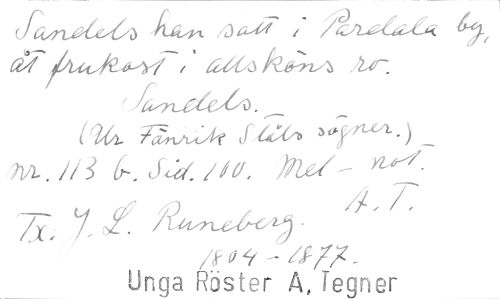 Sandels han satt i Pardala by,
åt frukost i allsköns ro.
Sandels.
(Ur Fänrik Ståls sägner.)
nr. 113 b. Sid. 100. Mel - not.
A. T.
Tx. J. L. Runeberg.
1804-1877.
Unga Röster A. Tegner